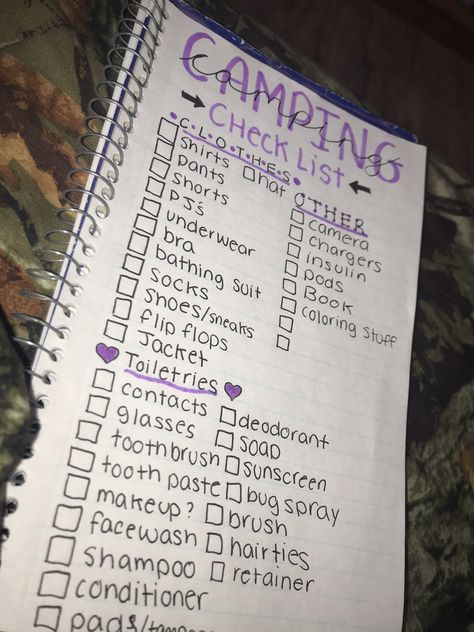 CAMPING
camping
→ CHECK LIST ←
• C.L.O.T.H.E.S. •
shirts
hat
pants
shorts
PJ's
underwear
bra
bathing suit
socks
shoes/sneaks
flip flops
Jacket
OTHER
camera
chargers
insulin
pods
Book
coloring stuff
♥ Toiletries ♥
contacts
glasses
toothbrush
tooth paste
makeup?
facewash
shampoo
conditioner
pads/tampons
deodorant
soap
sunscreen
bug spray
brush
hairties
retainer